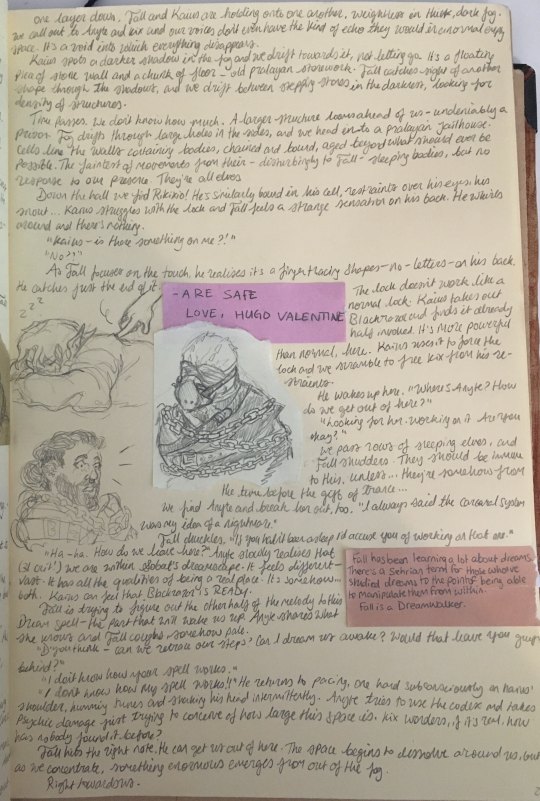 one layer down, Fall and Kairus are holding onto one another, weightless in thick, dark fog.
We call out to Anyte and Kix and our voices don't even have the kind of echo they would in a normal empty
space. It's a void into which everything disappears.
Kairus spots a darker shadow in the fog and we drift towards it, not letting go. It's a floating
piece of stone wall and a chunk of floor - old pralayan stonework. Fall catches sight of another
shape through the shadows, and we drift between stepping stones in the darkness, looking for
density of structures.
Time passes. We don't know how much. A larger structure looms ahead of us - undeniably a
prison. Fog drifts through large holes in the sides, and we head into a pralayan jailhouse.
Cells line the walls containing bodies, chained and bound, aged beyond what should ever be
possible. The faintest of movements from their - disturbingly to Fall - sleeping bodies, but no
response to our presence. They're all elves
Down the hall we find Kikino! He's similarly bound in his cell, restraints over his eyes, his
snout... Kairus struggles with the lock and Fall feels a strange sensation on his back. He whirls
around and there's nothing.
"Kairus - is there something on me?!"
"No?!"
As Fall focuses on the touch, he realises it's a finger tracing shapes - no - letters - on his back.
He catches just the end of it.
- ARE SAFE
LOVE, HUGO VALENTINE
zzz
The lock doesn't work like a
normal lock. Kairus takes out
Blackrazor and finds it already
half invoked. It's more powerful
than normal, here. Kairus uses it to force the
lock and we scramble to free Kix from his re-
straints.
He wakes up here. "Where's Anyte? How
do we get out of here?"
"Looking for her. Working on it. Are you
okay?"
We pass rows of sleeping elves, and
Fall shudders. They should be immune
to this, unless... they're somehow from
the time before the gift of trance...
We find Anyte and break her out, too. "I always said the carceral system
was my idea of a nightmare."
Fall chuckles. "If you hadn't been asleep I'd accuse you of working on that one."
"Ha-ha. How do we leave here?" Anyte slowly realises that
we are within dreamscape. It feels different -
vast. It has all the qualities of being a real place. It's somehow...
both. Kairus can feel that Blackrazor's READY.
Fall has been learning a lot about dreams.
There's a term for those who've
studied dreams to the point of being able
to manipulate them from within.
Fall is a Dreamwalker.
Fall is trying to figure out the other half of the melody to this
Dream spell - the part that will wake us up. Anyte shares what
she knows and Fall coughs somehow pale.
"D'you think - can we retrace our steps? Can I dream us awake? Would that leave you guys
behind?"
"I don't know how your spell works."
"I don't know how my spell works!" He returns to pacing, one hand subconsciously on Kairus'
shoulder, humming tunes and shaking his head intermittently. Anyte tries to use the codex and takes
psychic damage just trying to conceive of how large this space is. Kix wonders, if it's real, how
has nobody found it before?
Fall hits the right note. He can get us out of here. The space begins to dissolve around us, but
as we concentrate, something enormous emerges from out of the fog.
Right towards us.